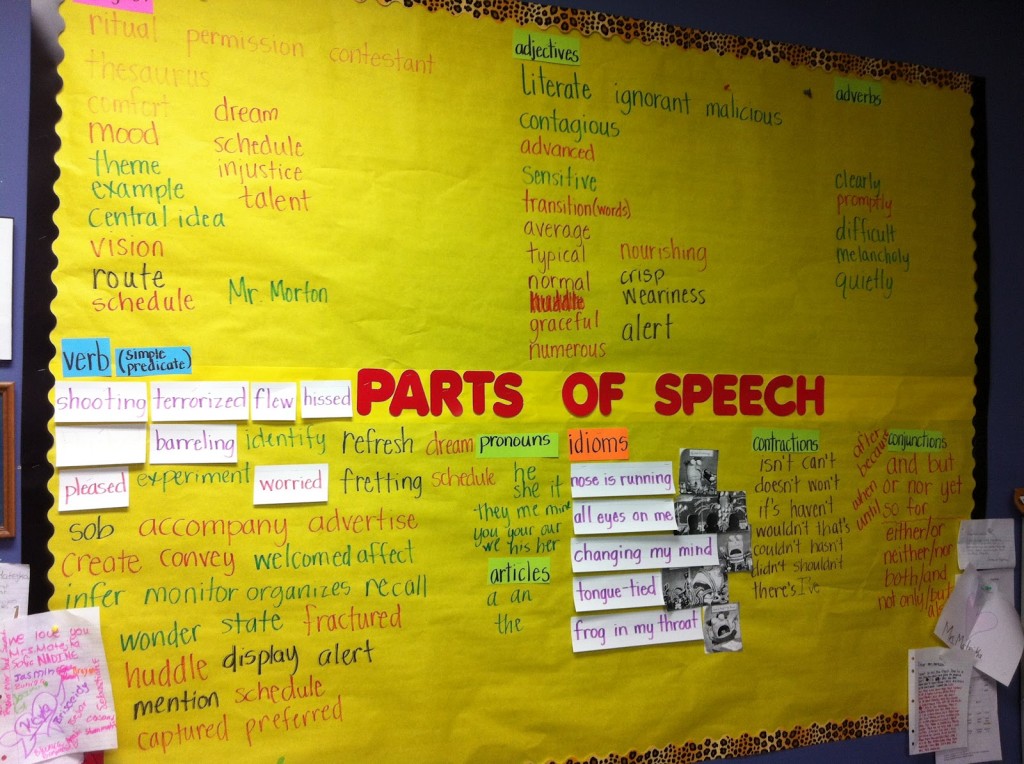 ritual permission contestant
thesaurus
comfort dream
mood schedule
theme injustice
example talent
central idea
vision
route
schedule Mr. Morton
adjectives
literate ignorant malicious
contagious
advanced
sensitive
transition(words)
average
typical nourishing
normal crisp
huddle weariness
graceful alert
numerous
adverbs
clearly
promptly
difficult
melancholy
quietly
verb (simple predicate)
PARTS OF SPEECH
shooting terrorized flew hissed
barreling identify refresh dream
pleased experiment worried fretting schedule
sob accompany advertise
create convey welcomed affect
infer monitor organizes recall
wonder state fractured
huddle display alert
mention schedule
captured preferred
pronouns
he
she it
they me mine
you your our
we his her
articles
a an
the
idioms
nose is running
all eyes on me
changing my mind
tongue-tied
frog in my throat
contractions
isn't can't
doesn't won't
if's haven't
wouldn't that's
couldn't hasn't
didn't shouldn't
there's I've
conjunctions
after
because
when
until
and but
or nor yet
so for
either/or
neither/nor
both/and
not only/but
We love you
Mrs. Mate
Sofis NADINE
Jasmin